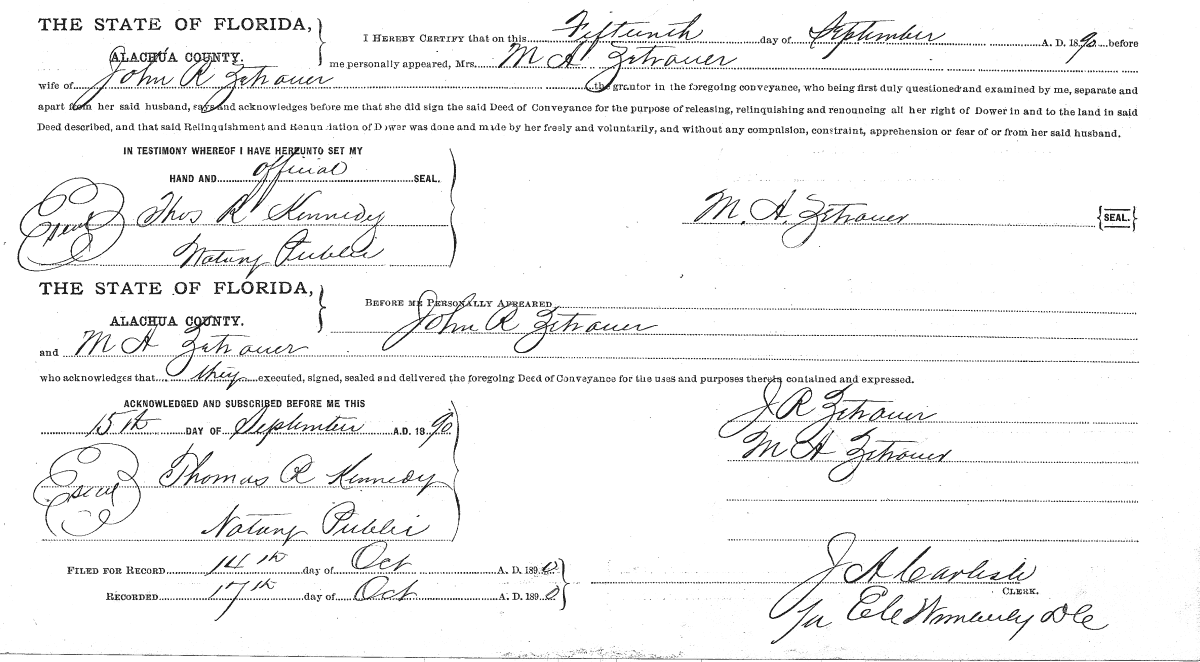 THE STATE OF FLORIDA,
ALACHUA COUNTY.
I HEREBY CERTIFY that on this Fifteenth day of September A. D. 1890 before
me personally appeared, Mrs. M A Zetrouer
wife of John R Zetrouer the grantor in the foregoing conveyance, who being first duly questioned and examined by me, separate and
apart from her said husband, says and acknowledges before me that she did sign the said Deed of Conveyance for the purpose of releasing, relinquishing and renouncing all her right of Dower in and to the land in said
Deed described, and that said Relinquishment and Renunciation of Dower was done and made by her freely and voluntarily, and without any compulsion, constraint, apprehension or fear of or from her said husband.
IN TESTIMONY WHEREOF I HAVE HEREUNTO SET MY
HAND AND official SEAL.
Seal Thos R Kennedy
Notary Public
M. A. Zetrouer SEAL.
THE STATE OF FLORIDA,
ALACHUA COUNTY.
BEFORE ME PERSONALLY APPEARED
John R Zetrouer
and M A Zetrouer
who acknowledges that they executed, signed, sealed and delivered the foregoing Deed of Conveyance for the uses and purposes therein contained and expressed.
ACKNOWLEDGED AND SUBSCRIBED BEFORE ME THIS
15th DAY OF September A.D. 1890
Seal Thomas R Kennedy
Notary Public
J R Zetrouer
M A Zetrouer
FILED FOR RECORD 14th day of Oct A. D. 1890
RECORDED 17th day of Oct A. D. 1890
J A Carlisle
CLERK.
Wimberly DC